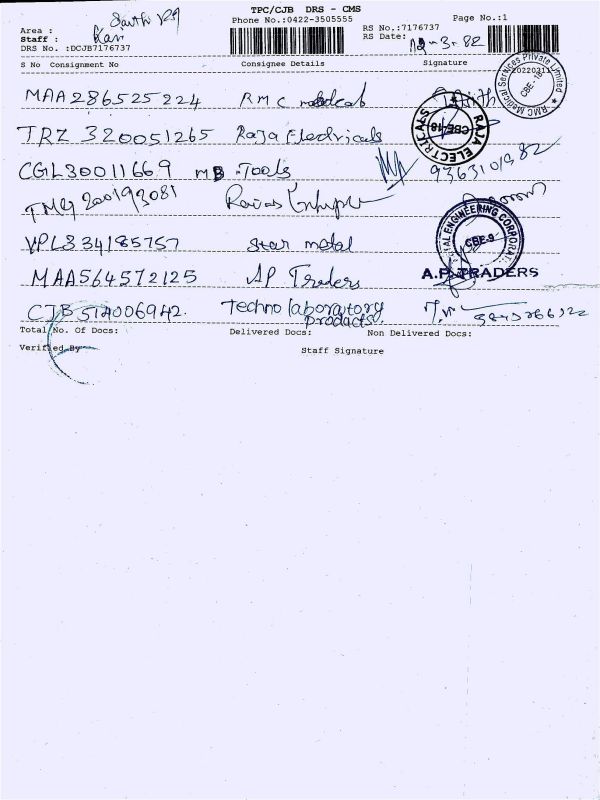 TPC/CJB DRS - CMS
Phone No.:0422-3505555
Page No.:1
Area :
Staff : Ravi
DRS No. :DCJB7176737
RS No.:7176737
RS Date:
S No Consignment No Consignee Details Signature
20220311
RMC Medical Services Private Limited
CBE-18
MAA286525224 RMC medical
TRZ 320051265 Raja Electricals
RAJA ELECTRICALS
CBE-18
CGL30011669 MB Tools 9363101382
TMG 200193081
VPL334185757 Star metal
ENGINEERING CORPORAT
CBE-9
MAA564572125 AP Traders
A.P. TRADERS
CJB 514006942. Techno laboratory products.
Total No. Of Docs: Delivered Docs: Non Delivered Docs:
Verified By Staff Signature